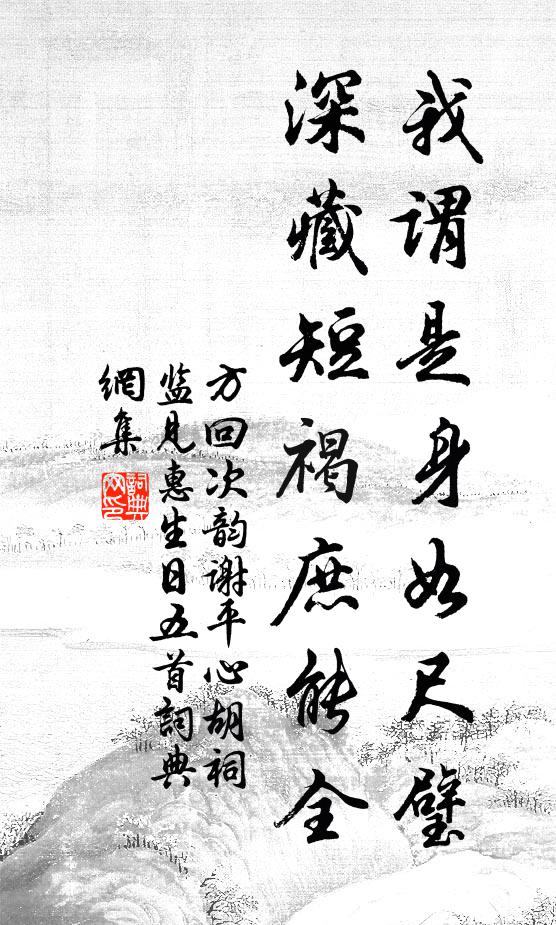 我谓是身如尺璧
深藏短褐庶能全
方回次韵谢平心胡祠
监见惠生日五首詞典
網集
詞典网印